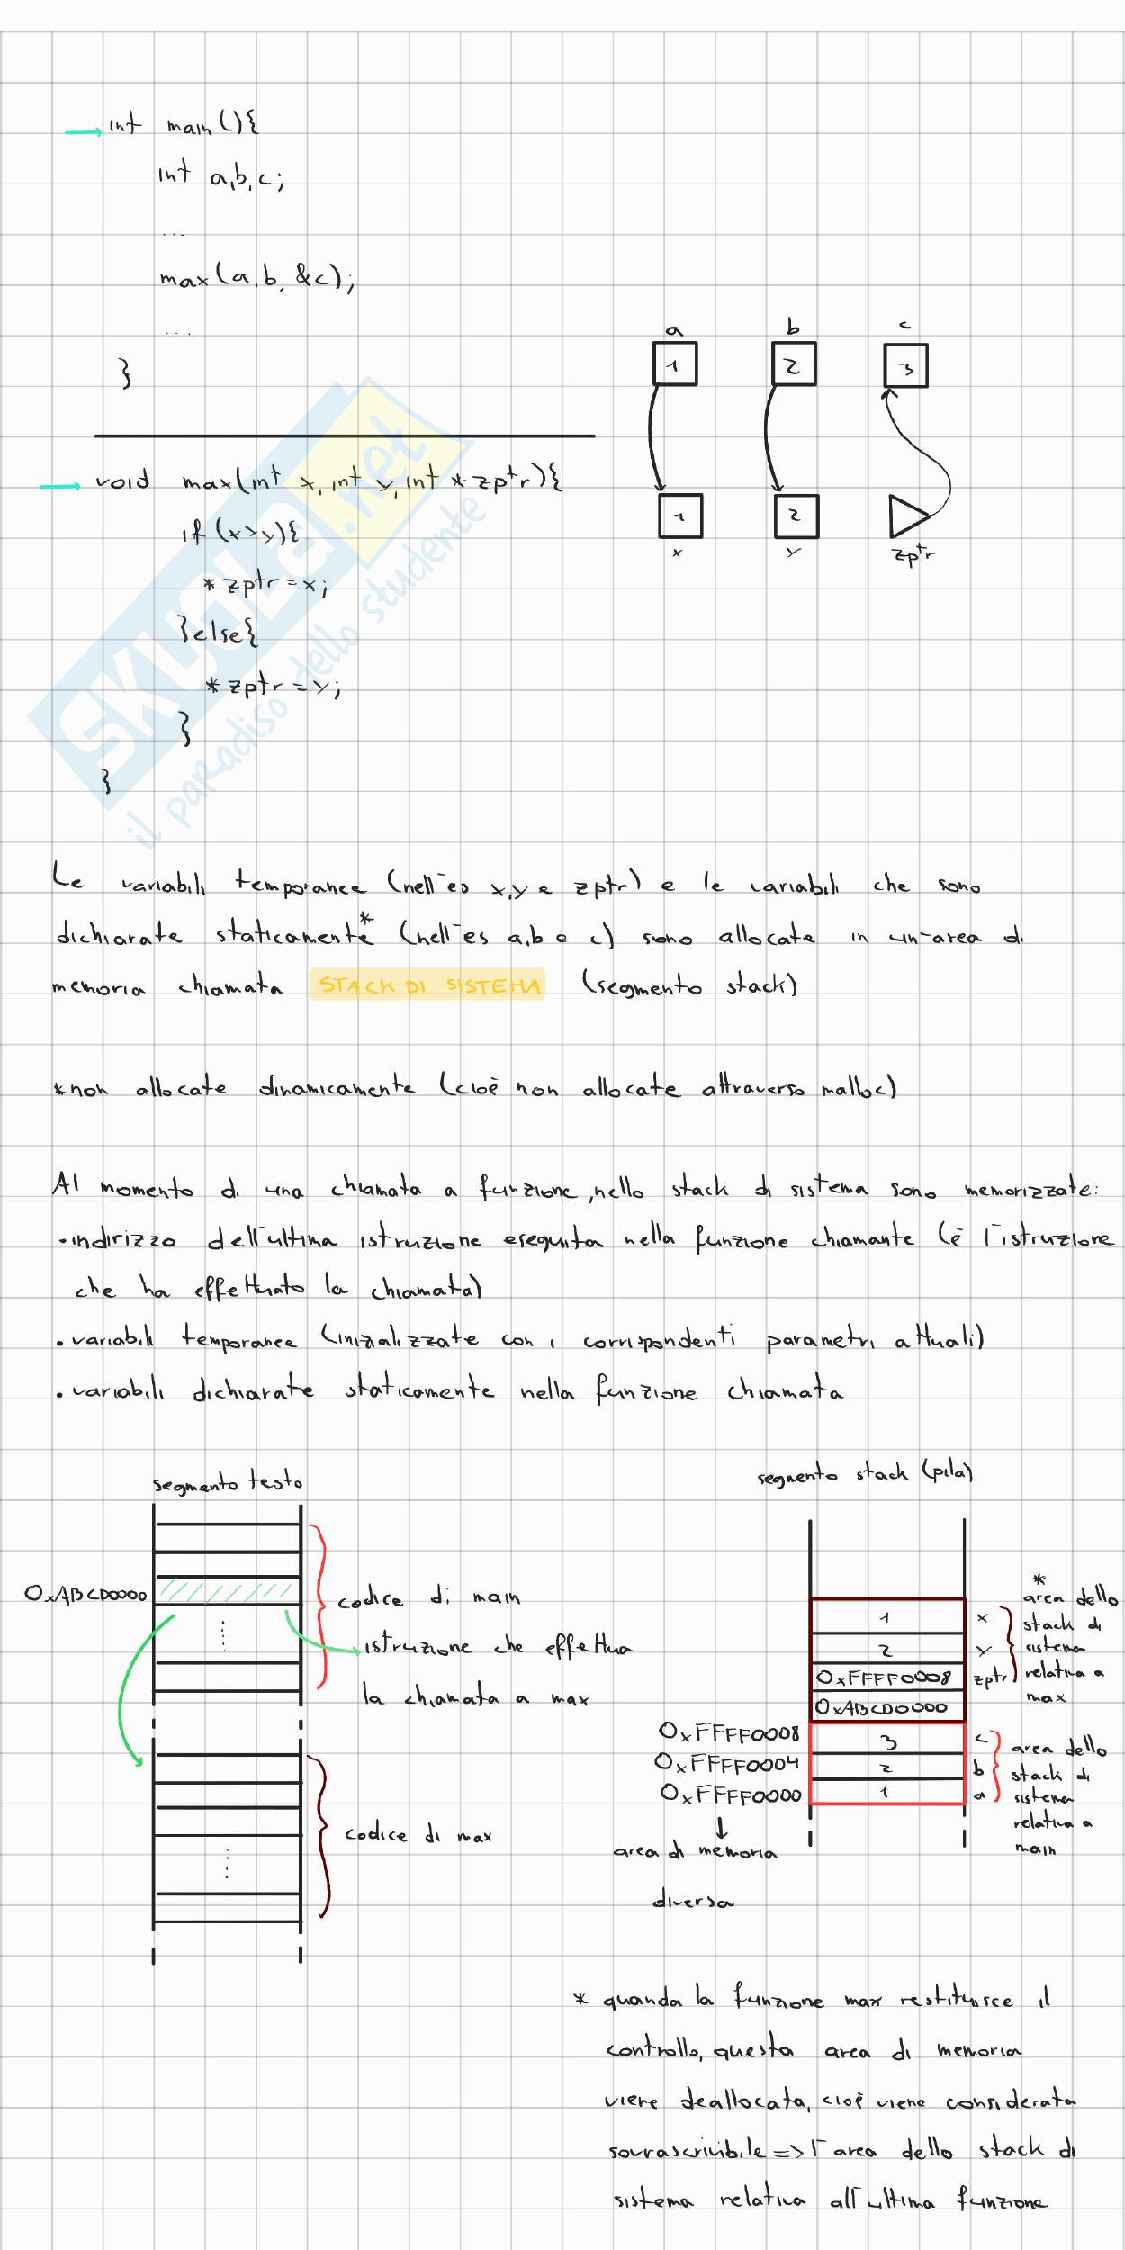 int main(){
int a,b,c;
...
max(a,b,&c);
...
}
a b c
1 2 3
void max(int x, int y, int *zptr){
1 2
x y zptr
if (x>y){
*zptr=x;
}else{
*zptr=y;
}
}
SKUOLA.net
il paradiso dello studente
Le variabili temporanee (nell'es x,y e zptr) e le variabili che sono
dichiarate staticamente* (nell'es a,b e c) sono allocate in un'area di
memoria chiamata STACK DI SISTEMA (segmento stack)
*non allocate dinamicamente (cioè non allocate attraverso malloc)
Al momento di una chiamata a funzione, nello stack di sistema sono memorizzate:
•indirizzo dell'ultima istruzione eseguita nella funzione chiamante (è l'istruzione
che ha effettuato la chiamata)
•variabili temporanee (inizializzate con i corrispondenti parametri attuali)
•variabili dichiarate staticamente nella funzione chiamata
segmento testo
0xABCD0000
codice di main
istruzione che effettua
la chiamata a max
codice di max
segmento stack (pila)
1 x
2 y
0xFFFF0008 zptr
0xABCD0000
0xFFFF0008 3 c
0xFFFF0004 2 b
0xFFFF0000 1 a
*
area dello
stack di
sistema
relativa a
max
area dello
stack di
sistema
relativa a
main
area di memoria
diversa
* quando la funzione max restituisce il
controllo, questa area di memoria
viene deallocata, cioè viene considerata
sovrascrivibile => l'area dello stack di
sistema relativa all'ultima funzione